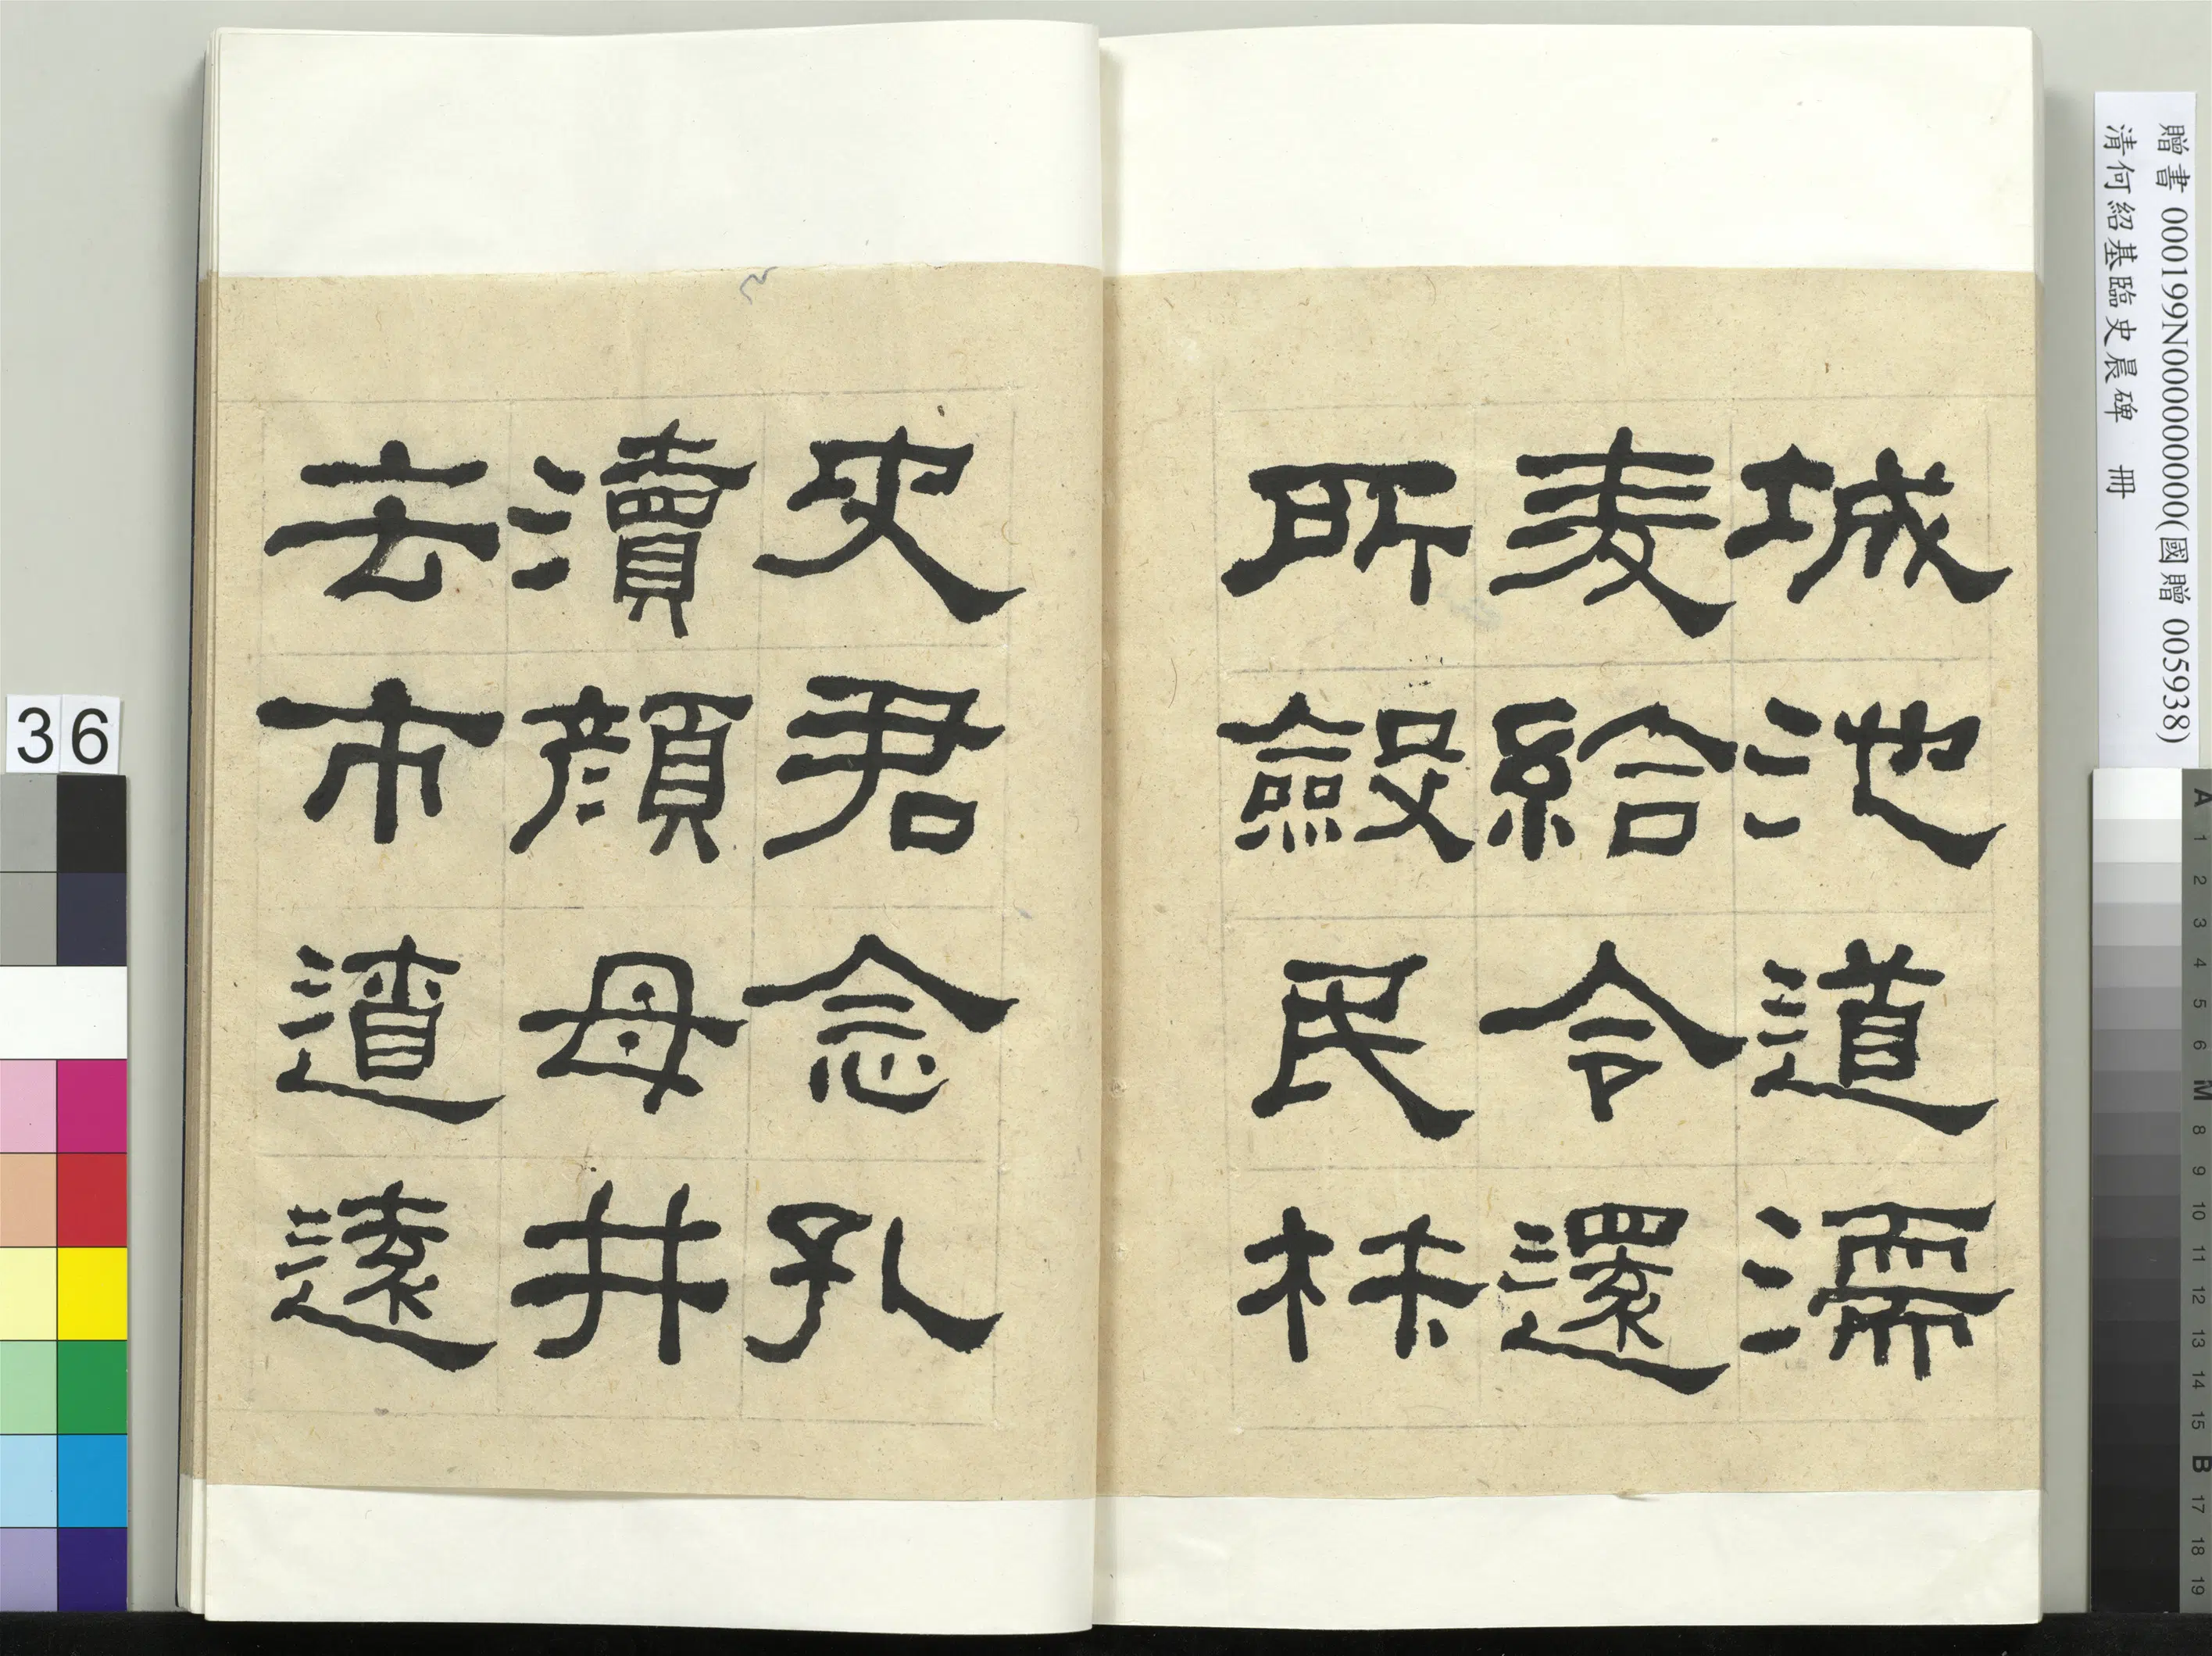 贈書 000199N000000000(國贈 005938)
清何紹基臨史晨碑 冊
城池道濡
麦給令還
所斂民材
史君念孔
瀆顏母井
去市遼遠
36
A 1 2 3 4 5 6 M 8 9 10 11 12 13 14 15 B 17 18 19